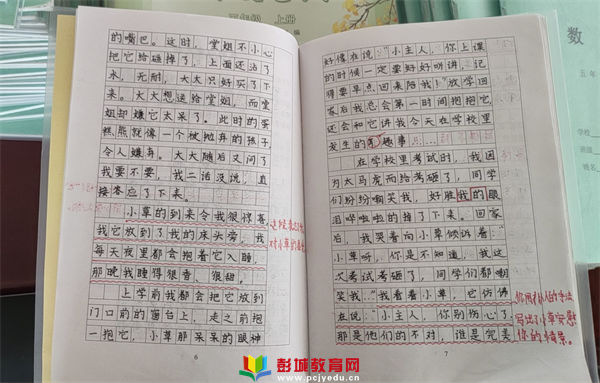 的嘴巴。这时，堂姐不小心
把它给碰掉了，上面还沾了
水，无耐，大大只好买了下
来。大大想送给堂姐，而堂
姐却嫌它太呆了。此时的蛋
糕熊就像一个被抛弃的孩子，
令人嫌弃。大大随后又问了
我要不要，我二话没说，直
接答应了下来。
小草的到来令我很惊喜，
我它放到了我的床头旁，我
每天夜里都会抱着它入睡，
那晚我睡得很香，很甜。
上学前我都会把它放到
门口前的窗台上，走之前抱
一抱它，小草那呆呆的眼神
6
好像在说："小主人，你上课
的时候一定要好好听讲，记
得要早点回来陪我！"放学回
家后我总会第一时间抱抱它，
还会和它讲我今天在学校里
发生的趣事……
在学校里考试时，我因
为太马虎而给考砸了，同学
们纷纷嘲笑我，好胜我的眼
泪哗啦啦的掉了下来。回家
后，我哭着向小草倾诉着："
小草呀，你是不知道，我这
次考试考砸了，同学们都嘲
笑我。"我看着小草，它仿佛
在说："小主人，你别伤心了，
那是他们的不对，谁是完美
7
你用拟人的手法
写出了小草安慰
你的情景。
上册
数
五年
学校
班级
姓名
彭城教育网
www.pcjyedu.cn